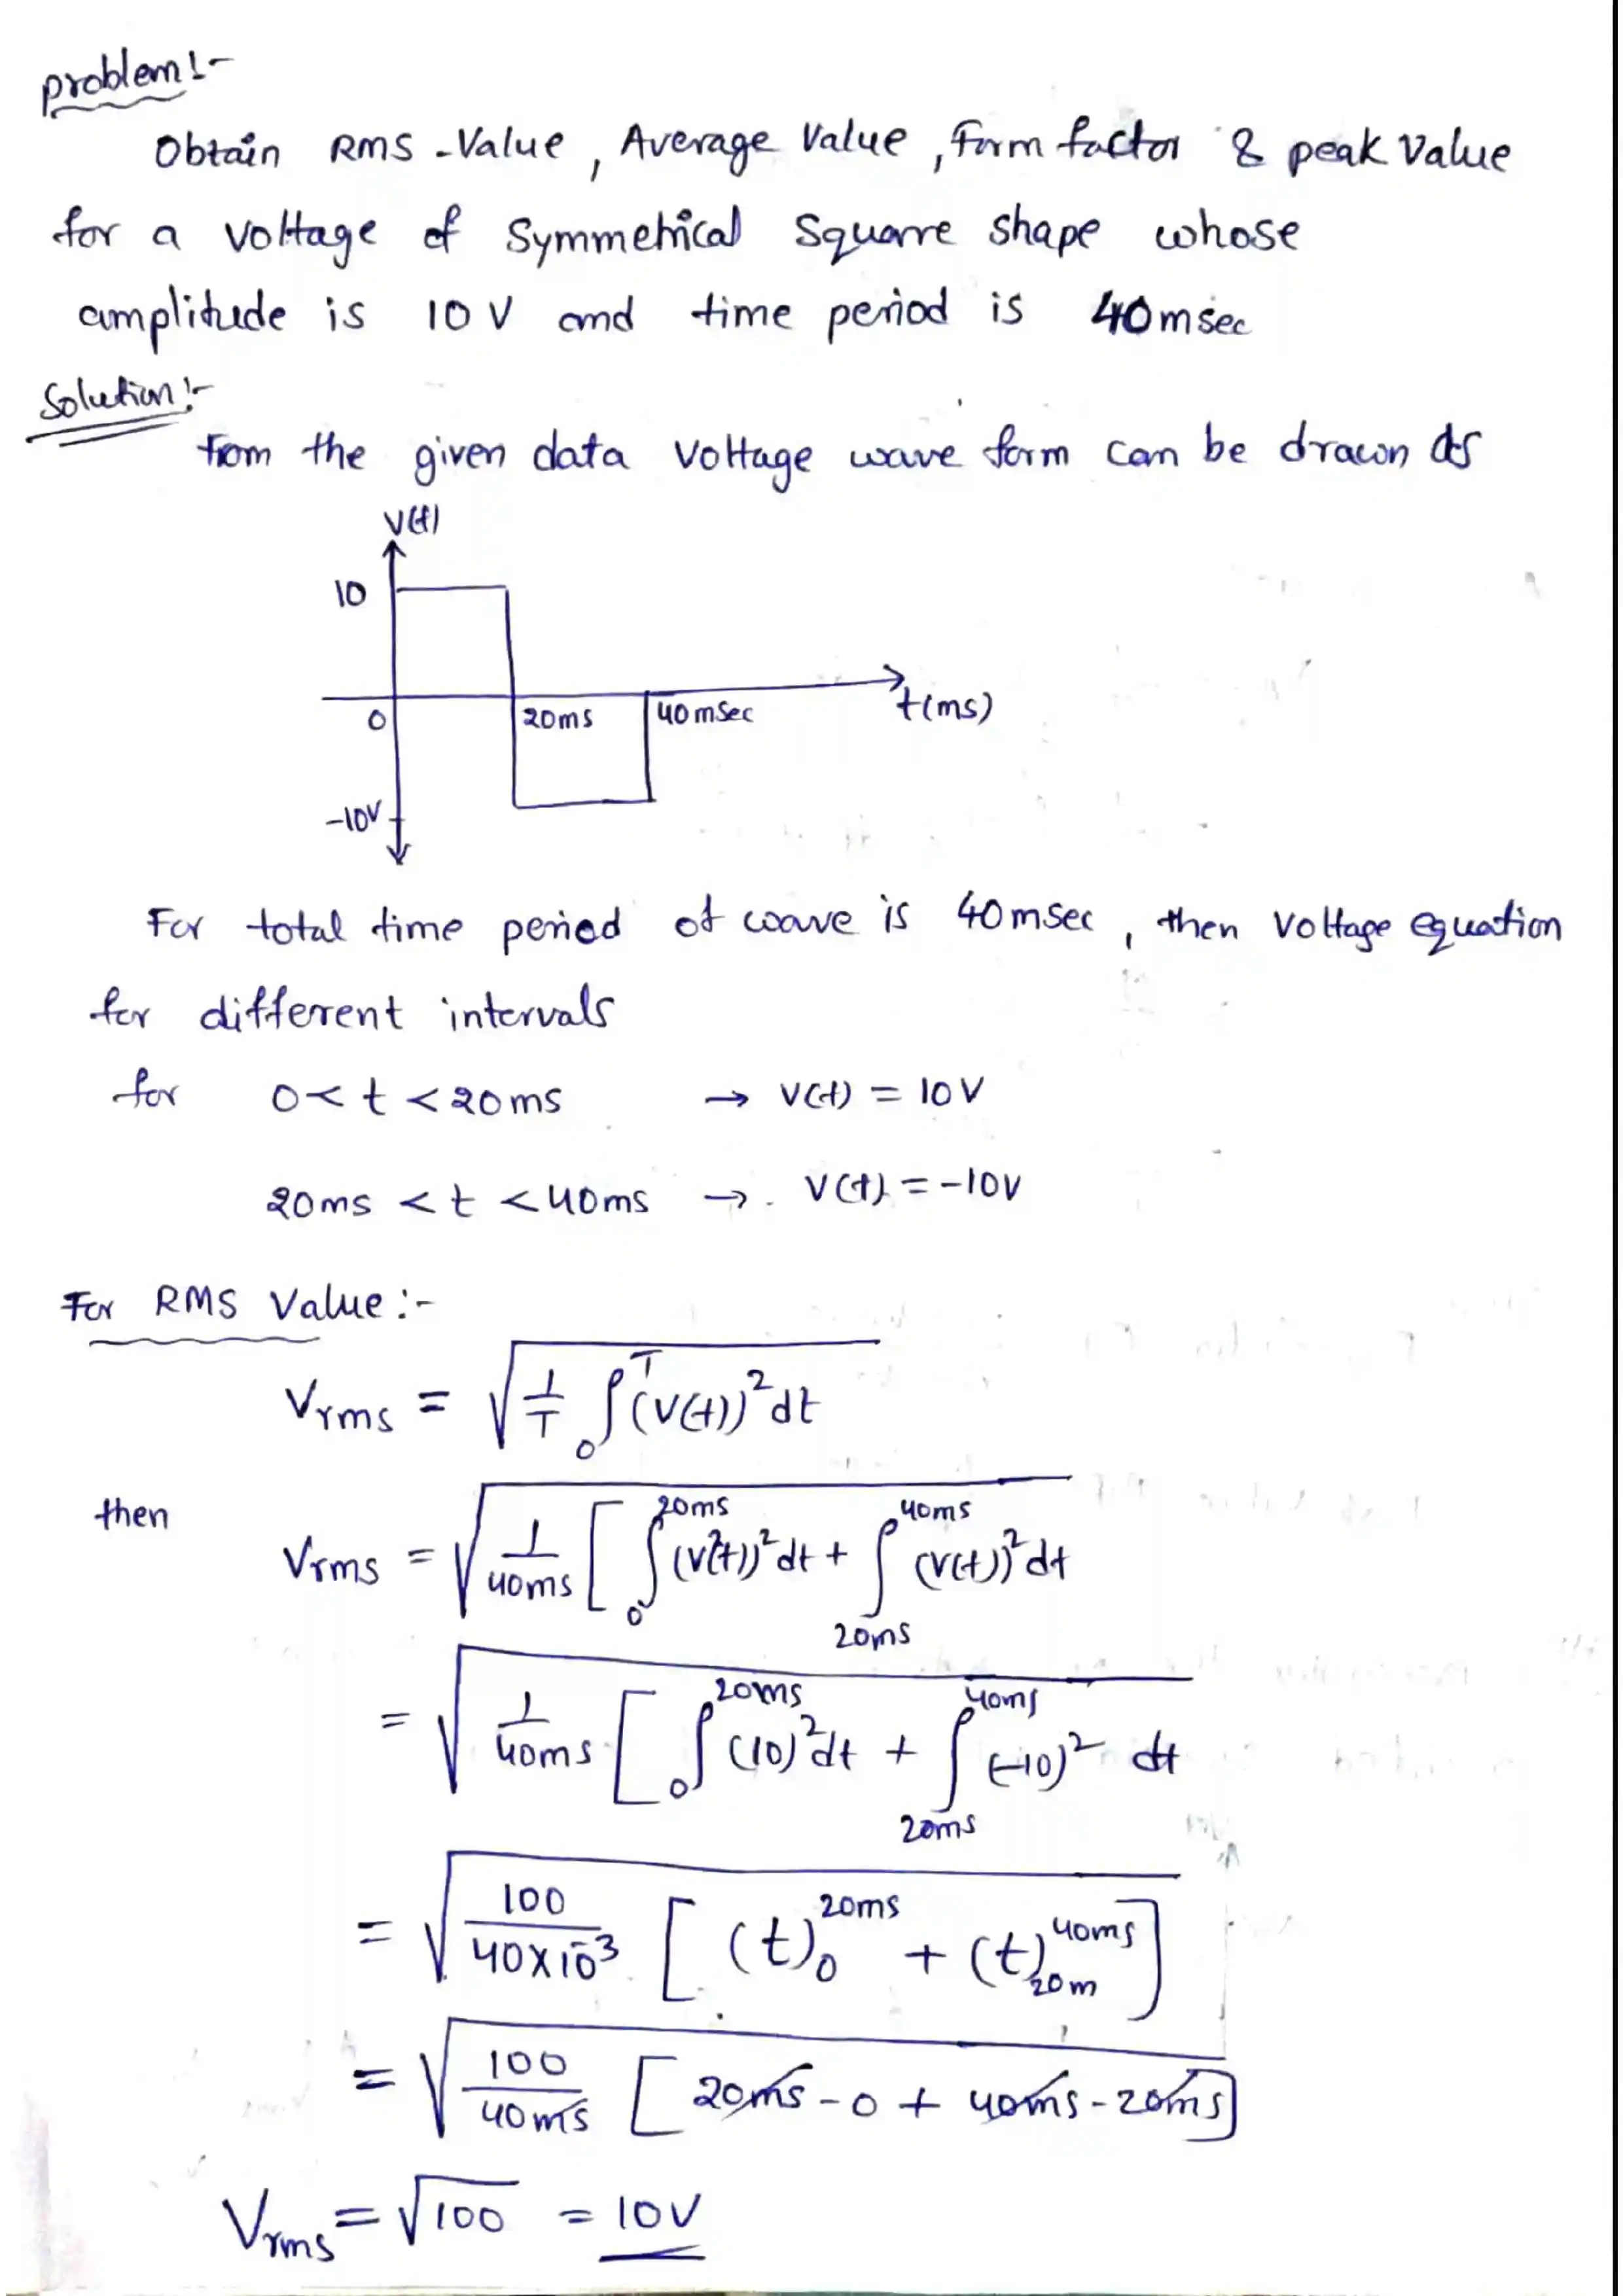 problem:-
Obtain RMS -Value, Average Value, Form factor & peak Value
for a voltage of Symmetrical Square shape whose
amplitude is 10 V and time period is 40 msec
Solution:-
From the given data voltage wave form can be drawn as
V(t)
10
0 20ms 40 msec t(ms)
-10V
For total time period of wave is 40 msec, then voltage equation
for different intervals
for 0 < t < 20 ms → V(t) = 10 V
20ms < t < 40ms → V(t) = -10V
For RMS Value :-
Vrms = √(1/T ∫₀ᵀ (V(t))² dt)
then Vrms = √(1/40ms [ ∫₀^20ms (V²(t))² dt + ∫_20ms^40ms (V(t))² dt
= √(1/40ms [ ∫₀^20ms (10)² dt + ∫_20ms^40ms (-10)² dt
= √(100/40×10⁻³ [ (t)₀^20ms + (t)_20m^40ms ]
= √(100/40ms [ 20ms - 0 + 40ms - 20ms ]
Vrms = √100 = 10V